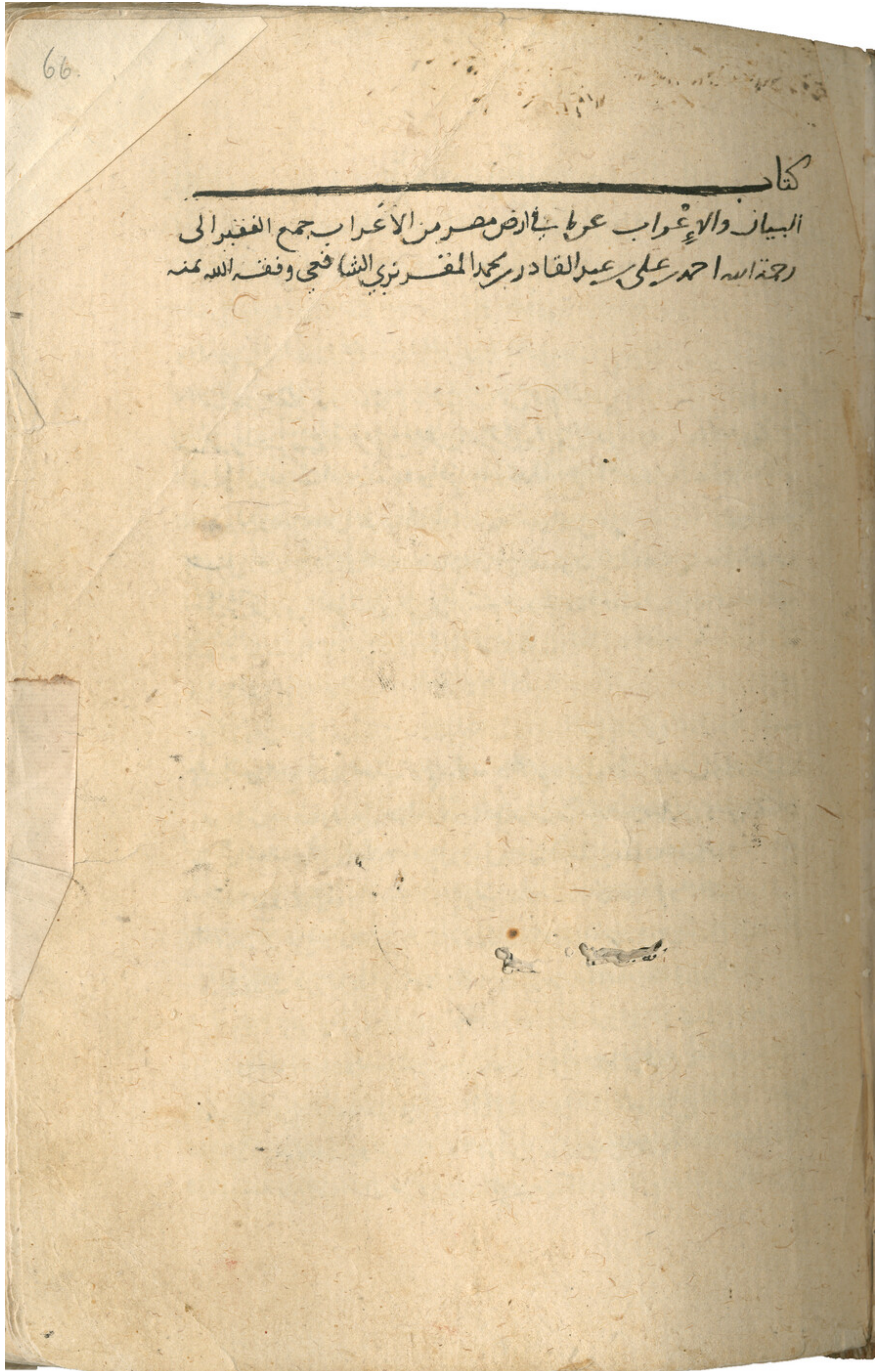 66
كتاب
البيان والإعْراب عن ما في ارض مصر من الأعراب جمع الفقير الى
رحمة الله احمد بن على بن عبد القادر بن محمد المقريزي الشافعي وفقه الله بمنه